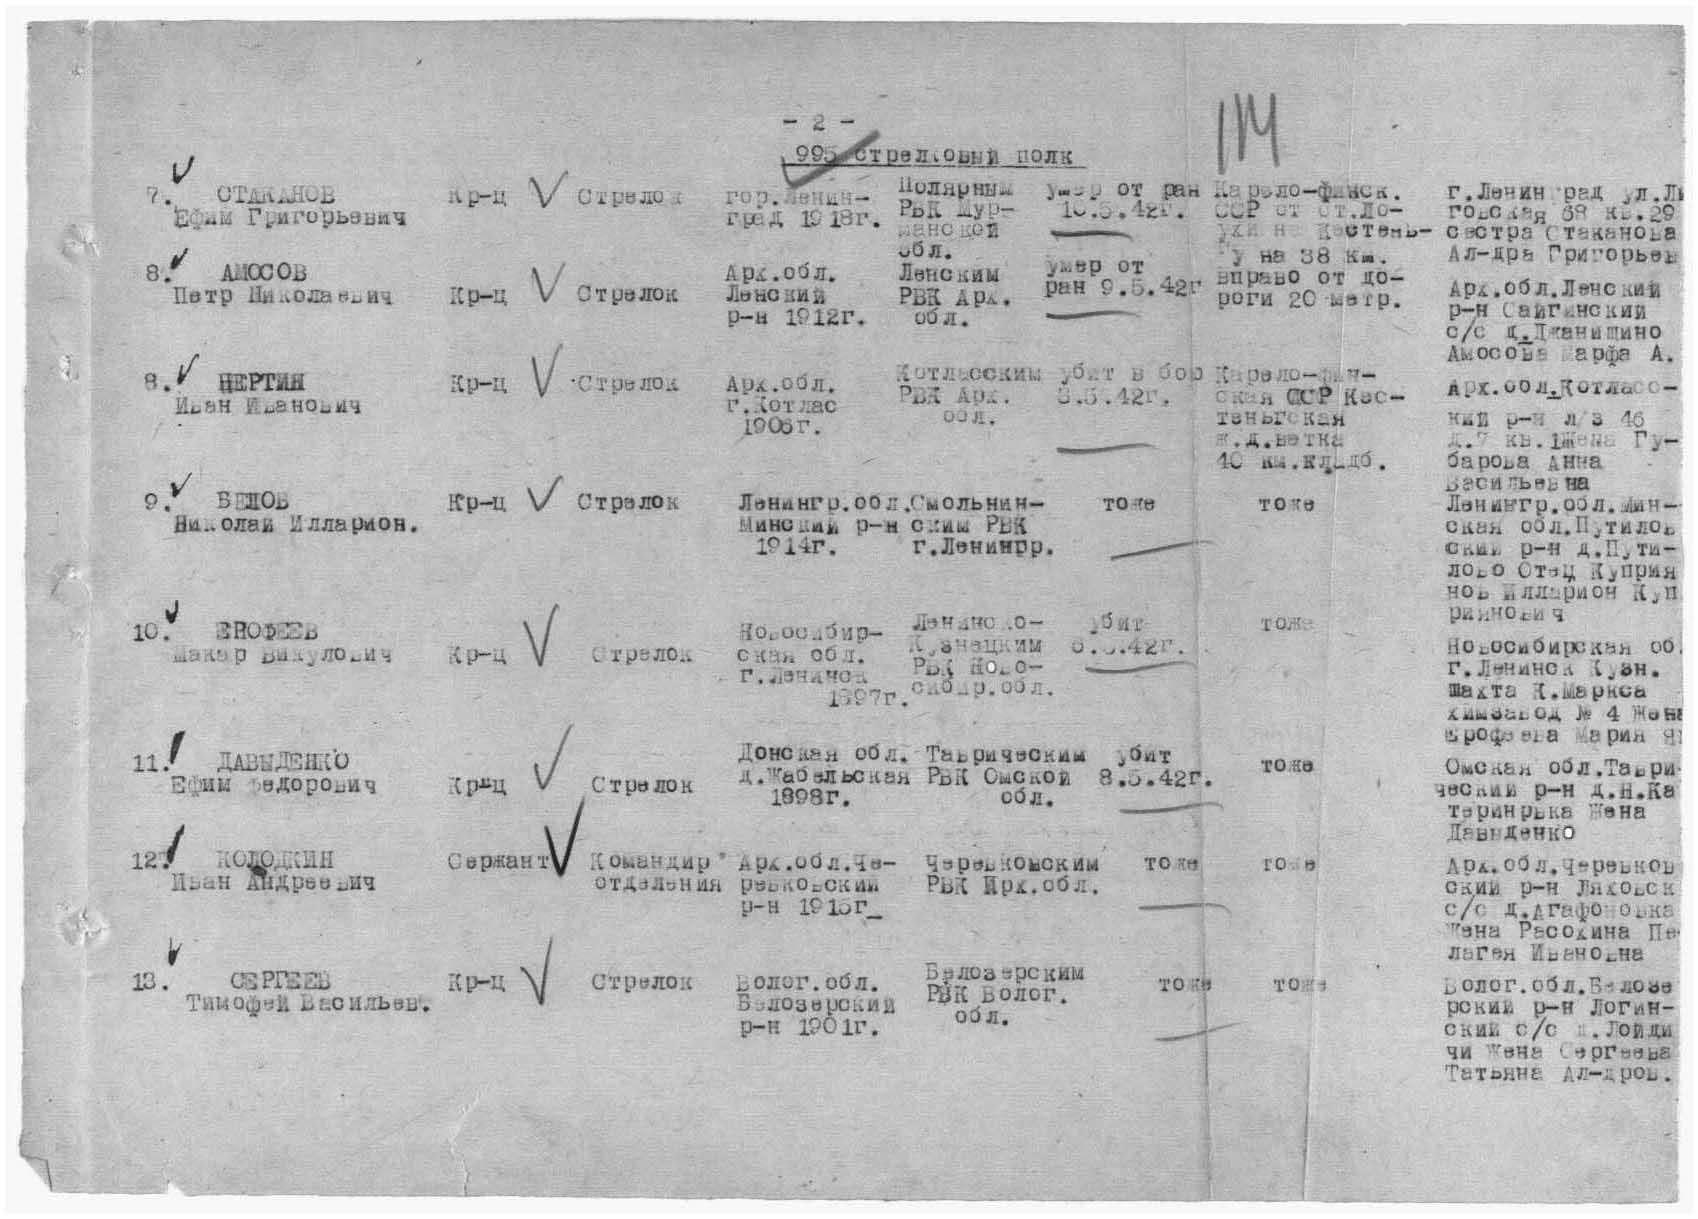 - 2 -
114
995 стрелковый полк
7. СТАКАНОВ
Ефим Григорьевич
Кр-ц
Стрелок
гор.Ленин-
град 1918г.
Полярным
РВК Мур-
манской
обл.
умер от ран
10.5.42г.
Карело-финск.
ССР от ст.Ло-
ухи на Кестень-
гу на 38 км.
вправо от до-
роги 20 метр.
г.Ленинград ул.Ли
говская 68 кв.29
сестра Стаканова
Ал-дра Григорьев
8. АМОСОВ
Петр Николаевич
Кр-ц
Стрелок
Арх.обл.
Ленский
р-н 1912г.
Ленским
РВК Арх.
обл.
умер от
ран 9.5.42г
Арх.обл.Ленский
р-н Сайгинский
с/с д.Джанишино
Амосова Марфа А.
8. ЧЕРТИН
Иван Иванович
Кр-ц
Стрелок
Арх.обл.
г.Котлас
1906г.
Котласским
РВК Арх.
обл.
убит в бор
8.5.42г.
Карело-фин-
ская ССР Кес-
теньгская
ж.д.ветка
40 км.кладб.
Арх.обл.Котласс-
кий р-н л/з 46
д.7 кв.1Жена Гу-
барова Анна
Васильевна
9. БЕЛОВ
Николай Илларион.
Кр-ц
Стрелок
Ленингр.обл.
Минский р-н
1914г.
Смольнин-
ским РВК
г.Ленингр.
тоже
тоже
Ленингр.обл.Мин-
ская обл.Путилов
ский р-н д.Пути-
лово Отец Куприя
нов Илларион Куп
риянович
10. ЕРОФЕЕВ
Макар Викулович
Кр-ц
Стрелок
Новосибир-
ская обл.
г.Ленинск
1897г.
Ленинско-
Кузнецким
РВК Ново-
сибир.обл.
убит
8.5.42г.
тоже
Новосибирская об.
г.Ленинск Кузн.
Шахта К.Маркса
химзавод № 4 Жена
Ерофеева Мария Я
11. ДАВЫДЕНКО
Ефим Федорович
Кр-ц
Стрелок
Донская обл.
д.Жабельская
1898г.
Таврическим
РВК Омской
обл.
убит
8.5.42г.
тоже
Омская обл.Таври-
ческий р-н д.Н.Ка
теринрька Жена
Давыденко
12. КОЛОДКИН
Иван Андреевич
Сержант
Командир
отделения
Арх.обл.Че-
ревковский
р-н 1915г_
Черевковским
РВК Арх.обл.
тоже
тоже
Арх.обл.Черевков
ский р-н Ляховск
с/с д.Агафоновка
Жена Расохина Пе-
лагея Ивановна
13. СЕРГЕЕВ
Тимофей Васильев.
Кр-ц
Стрелок
Волог.обл.
Белозерский
р-н 1901г.
Белозерским
РВК Волог.
обл.
тоже
тоже
Волог.обл.Белозе
рский р-н Логин-
ский с/с д.Лойди
чи Жена Сергеева
Татьяна Ал-дров.